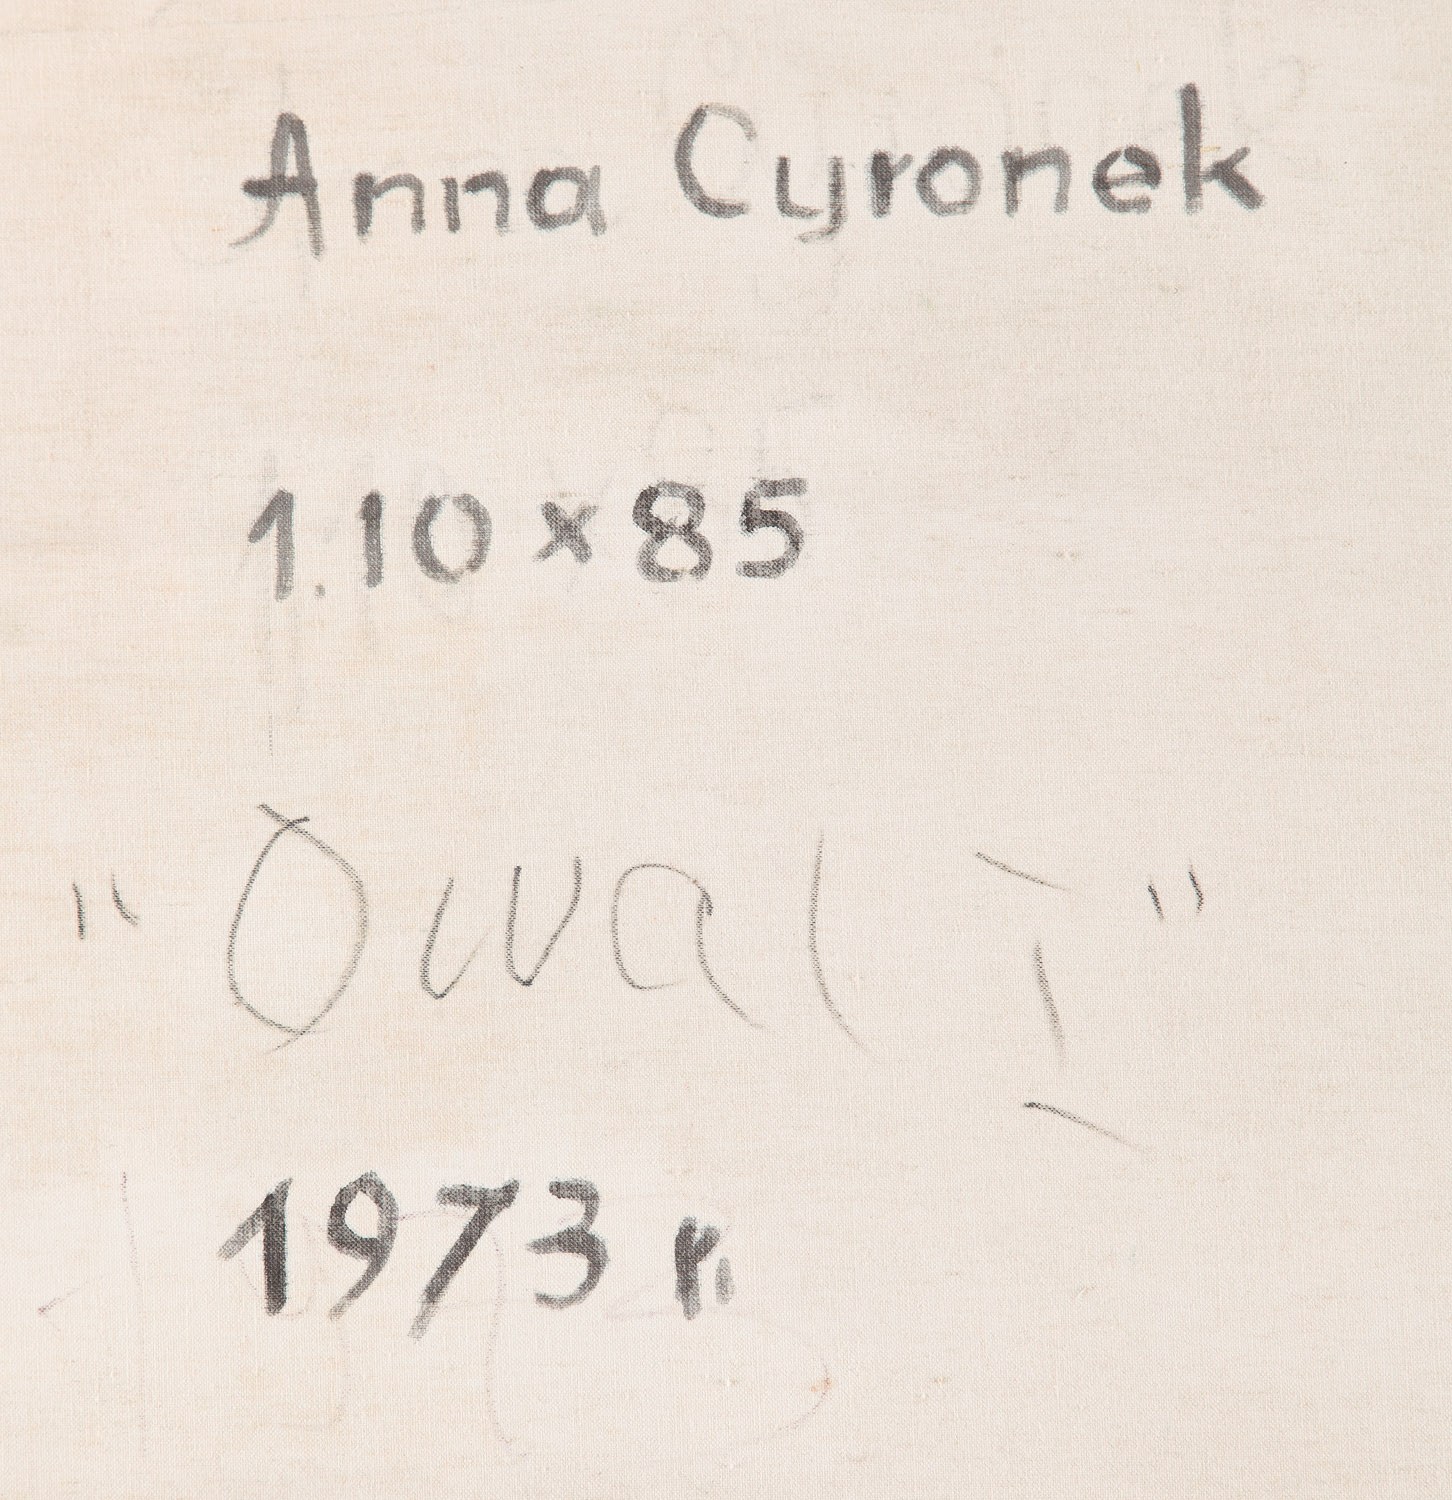 Anna Cyronek
1.10 x 85
"Owal I"
1973 r.